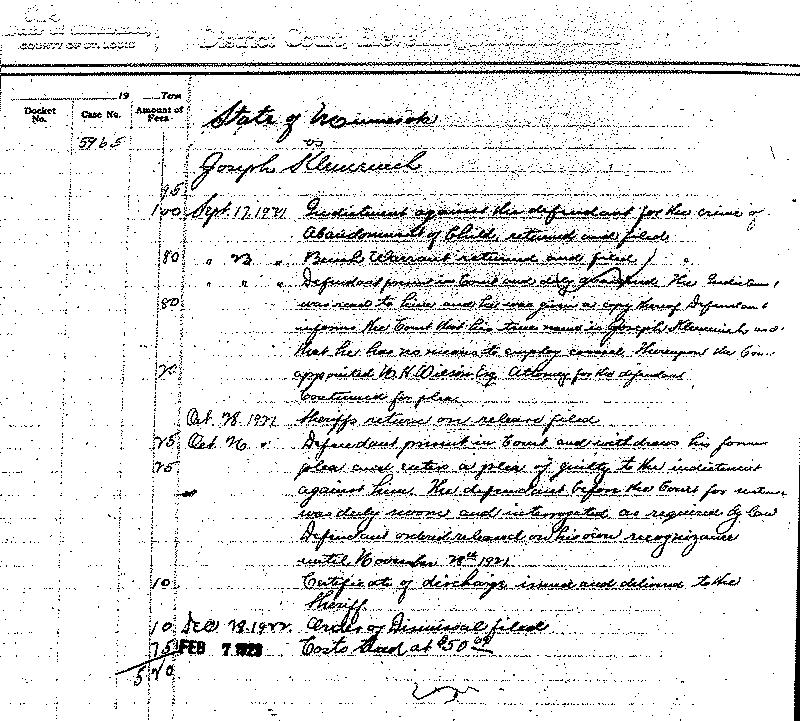 State of Minnesota,
COUNTY OF ST. LOUIS
District Court,
19 Term
Docket No. Case No. Amount of Fees
State of Minnesota
vs
5965
Joseph
95
100 Sept. 17, 1921 Indictment against the defendant for the crime of
Abandonment of Child, returned and filed
80 " " Bench Warrant returned and filed
" " " Defendant present in Court and duly arraigned. The Indictment
80 was read to him and he was given a copy thereof Defendant
informs the Court that his true name is Joseph and
that he has no means to employ counsel. Thereupon the Court
appointed W. H. Wilson Esq. Attorney for the defendant
Continued for plea
Oct. 28, 1921 Sheriffs return on release filed
25 Oct. 26 " Defendant present in Court and withdraws his former
25 plea and enters a plea of guilty to the indictment
against him. The defendant before the Court for sentence
was duly sworn and interrogated as required by law
Defendant ordered released on his own recognizance
until November 28th 1921
10 Certificate of discharge issued and delivered to the
Sheriff
10 Dec 28, 1922. Order of Dismissal filed
75 FEB 7 1923 Costs taxed at $50.00
5 20